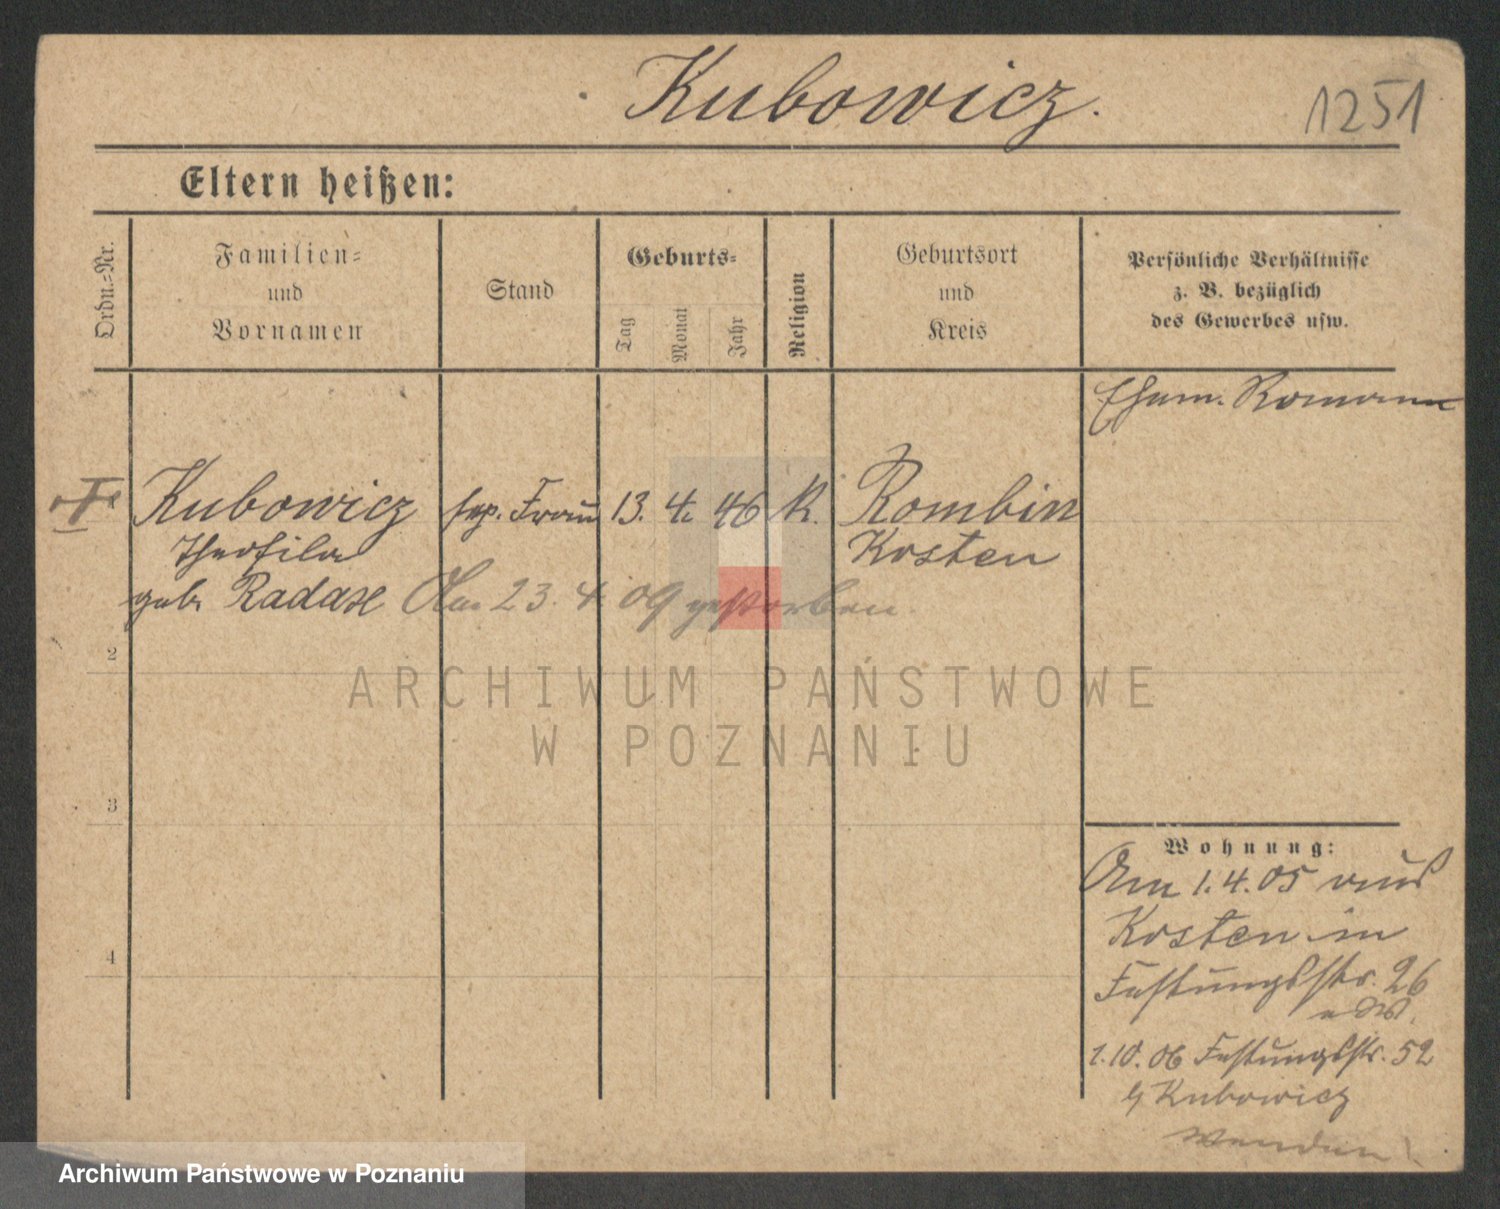 Kubowicz.
1251
Eltern heißen:
Ordn.-Nr.
Familien-
und
Vornamen
Stand
Geburts-
Tag
Monat
Jahr
Religion
Geburtsort
und
Kreis
Persönliche Verhältnisse
z. B. bezüglich
des Gewerbes usw.
Ehem. Roman
Kubowicz sep. Frau 13. 4. 46 K. Rombin
Theofila Kosten
geb. Radasz Am 23. 4. 09 gestorben.
2
3
4
Wohnung:
Am 1. 4. 05 aus
Kosten in
Festungsstr. 26
1. 10. 06 Festungsstr. 52
b/ Kubowicz
Wenden!
ARCHIWUM PAŃSTWOWE
W POZNANIU
Archiwum Państwowe w Poznaniu